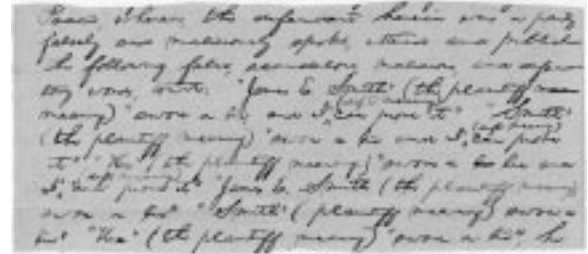 Peace, & hears, the defendant herein was a party
falsely and maliciously spoke, uttered and published
the following false, scandalous, malicious and defama
tory words, viz: "James E. Smith" (the plaintiff
meaning) "swore a lie, and I, can prove it" "Smith"
(self meaning)
(the plaintiff meaning) "swore a lie and I, can prove
(self meaning)
it" "He" (the plaintiff meaning) "swore a lie and
I, can prove it" "James E. Smith (the plaintiff meaning)
(self meaning)
swore a lie" "Smith" (plaintiff meaning) swore a
lie" "He" (the plaintiff meaning) "swore a lie", he